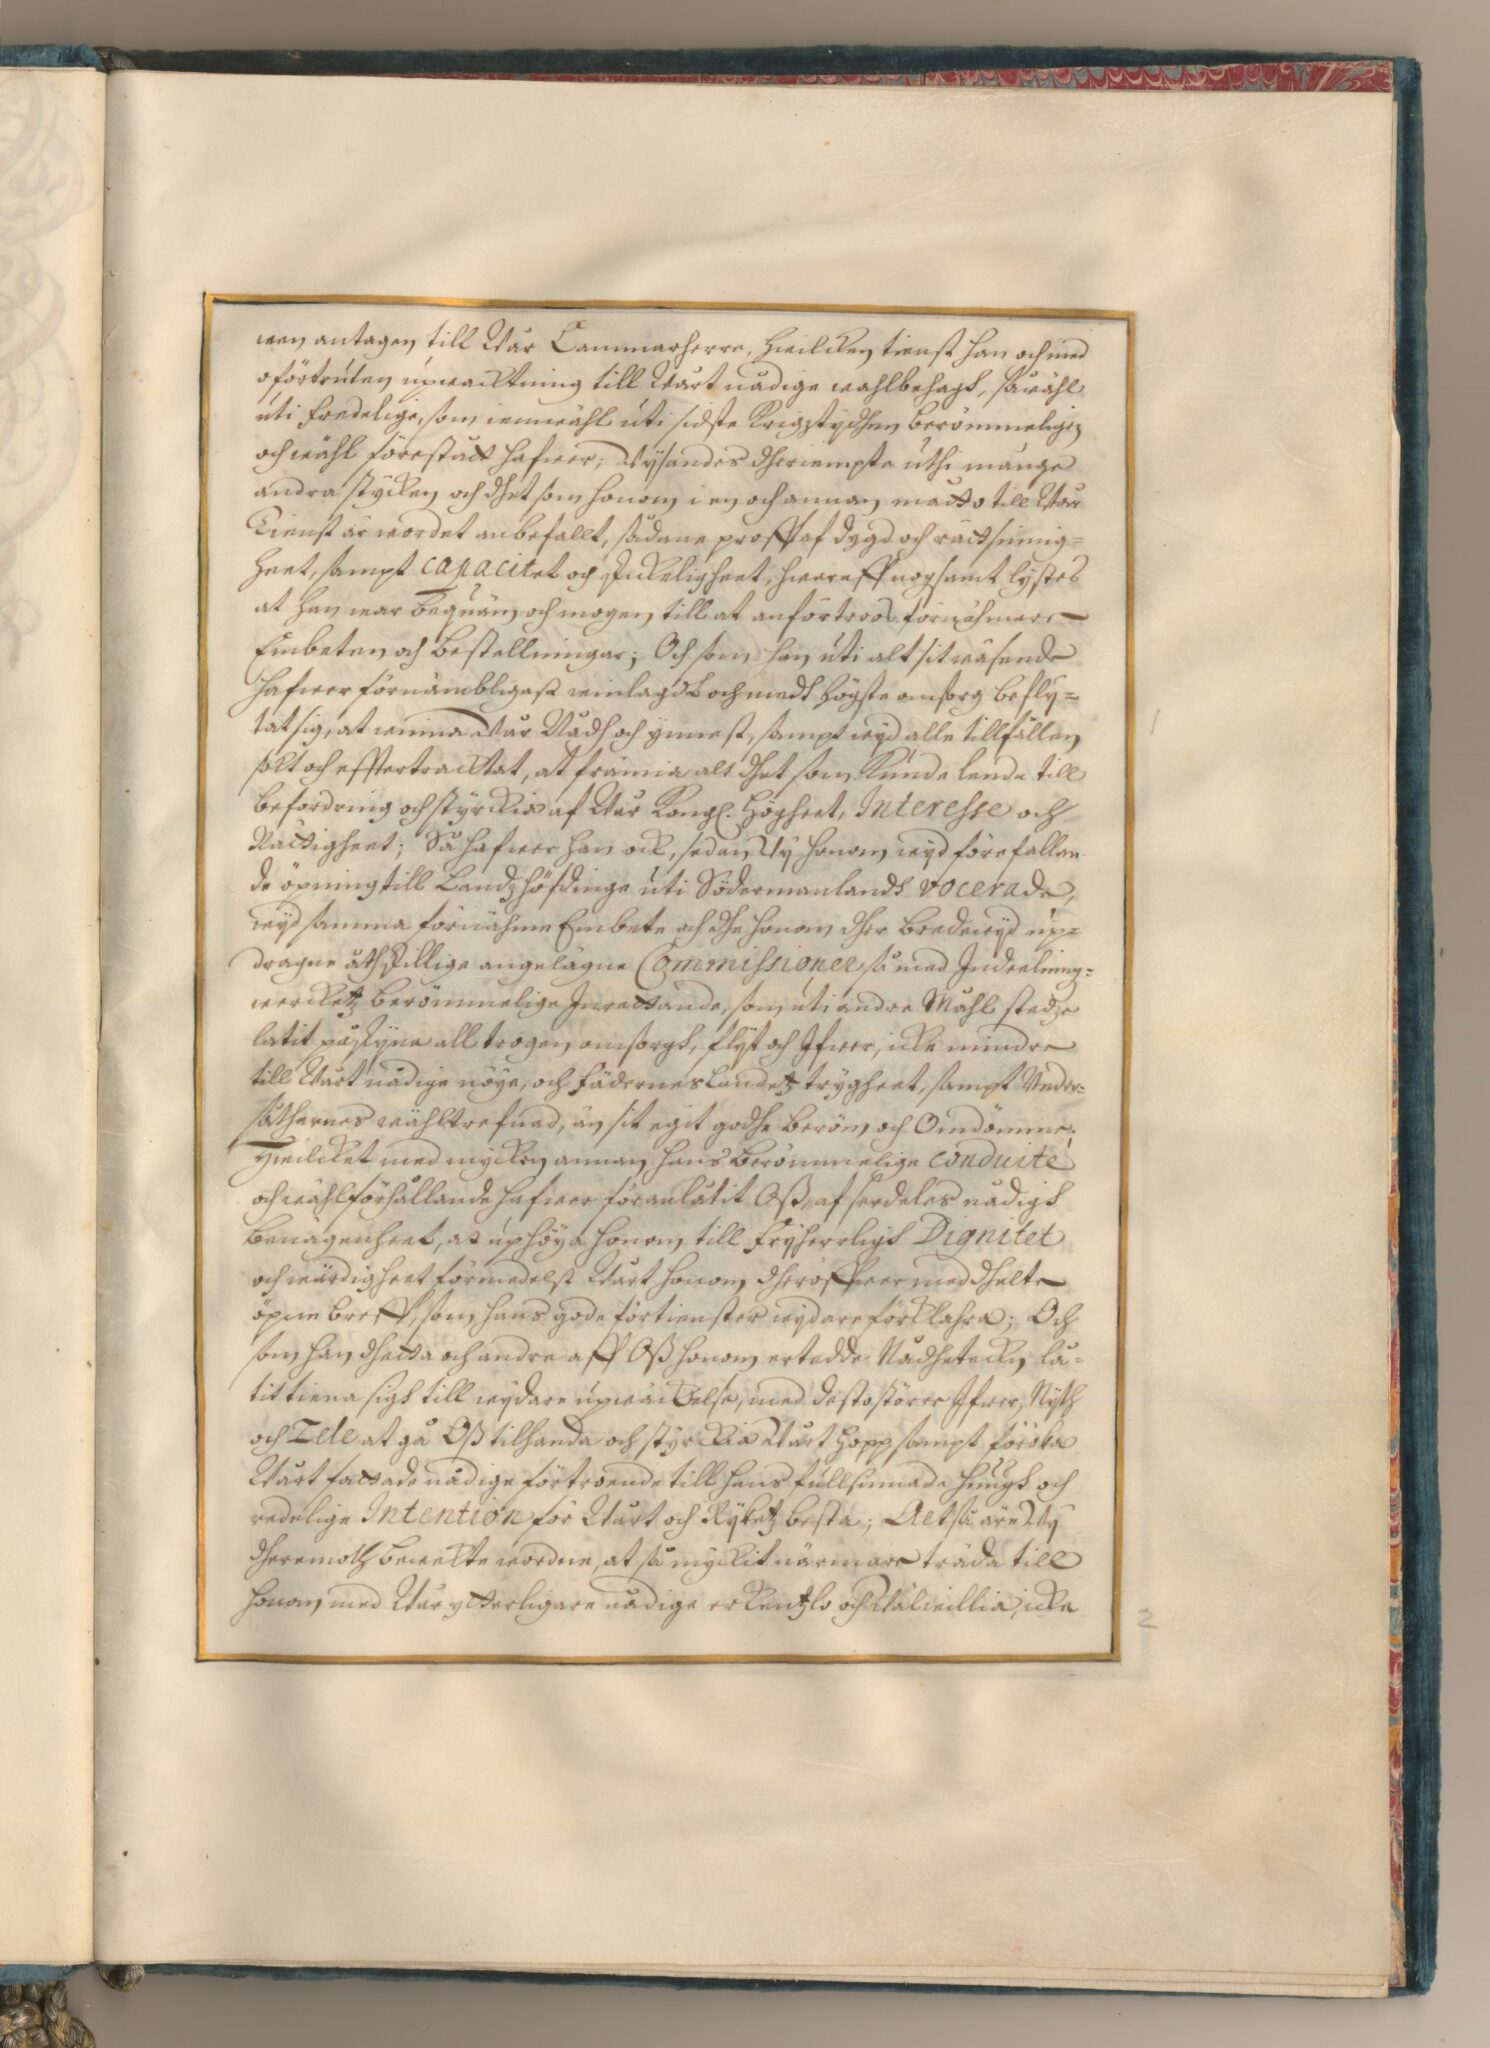 wen antagen till Wår Cammarherre, Hwilcken tienst han och med
oförtruten upwachtning till Wårt nådige wahlbehagh, såwähl
uti fredelige, som iemwähl uti sidste Krigztydhen berömmeligen
och wähl förestådt hafwer; Wysandes dheriempte uthi månge
andra stycken och dhet som honom i en och annan motto till Wår
Tienst är wordet anbefallt, sådane proff af dygd och rättsinnig-
heet, sampt capacitet och skickeligheet, hwaraff nogsamt lystes
at han war bequäm och mogen till at anförtroos förnähmere
Embeten och bestellningar; Och som han uti alt sit wäsende
hafwer förnämbligast winlagdt och medh högste omsorg befly-
tat sig, at winna Wår Nådh och ynnest, sampt wyd alle tillfällen
sökt och efftertrachtat, at främia alt dhet som kunde lenda till
befordring och styrckia af Wår Kongl. Högheet, Interesse och
Rättigheet; Så hafwer han ock, sedan Wy honom wyd förefallan-
de öpning till Landzhöfdinge uti Södermanlandh vocerade,
wyd samma förnähme Embete och dhe honom dher bredewyd up-
dragne åthskillige angelägne Commissioner så med Indeelning-
wercketz berömmelige Inrettande, som uti andre Måhl stedze
låtit påskyna all trogen omsorgh, flyt och Ifwer, icke mindre
till Wårt nådige nöye, och Fäderneslandetz trygheet, sampt Under-
såthernes wähltrefnad, än sit egit godhe beröm och Omdömme.
Hwilcket med mycken annan hans berömmelige conduite
och wählförhållande hafwer föranlåtit Oß, af serdeles nådigh
benägenheet, at uphöya honom till Fryherrligh Dignitet
och wärdigheet förmedelst Wårt honom dheröffwer meddhelte
öpne breff, som hans gode förtienster wydare förklahra; Och
som han dhetta och andre aff Oß honom ertedde Nådhetecken lå-
tit tiena sigh till wydare upwäckelse, med desto större Ifwer, Nyth
och Zele at gå Oß tilhanda och styrckia Wårt hopp sampt föröka
Wårt fattade nådige förtroende till hans fullsinnade hugh och
redelige Intention för Wårt och Ryketz besta; Altså äre Wy
dheremoth bewekte wordne, at så myckit närmare träda till
honom med Wår ytterligare nådige erkentzlo och Wälwillia, icke
1
2